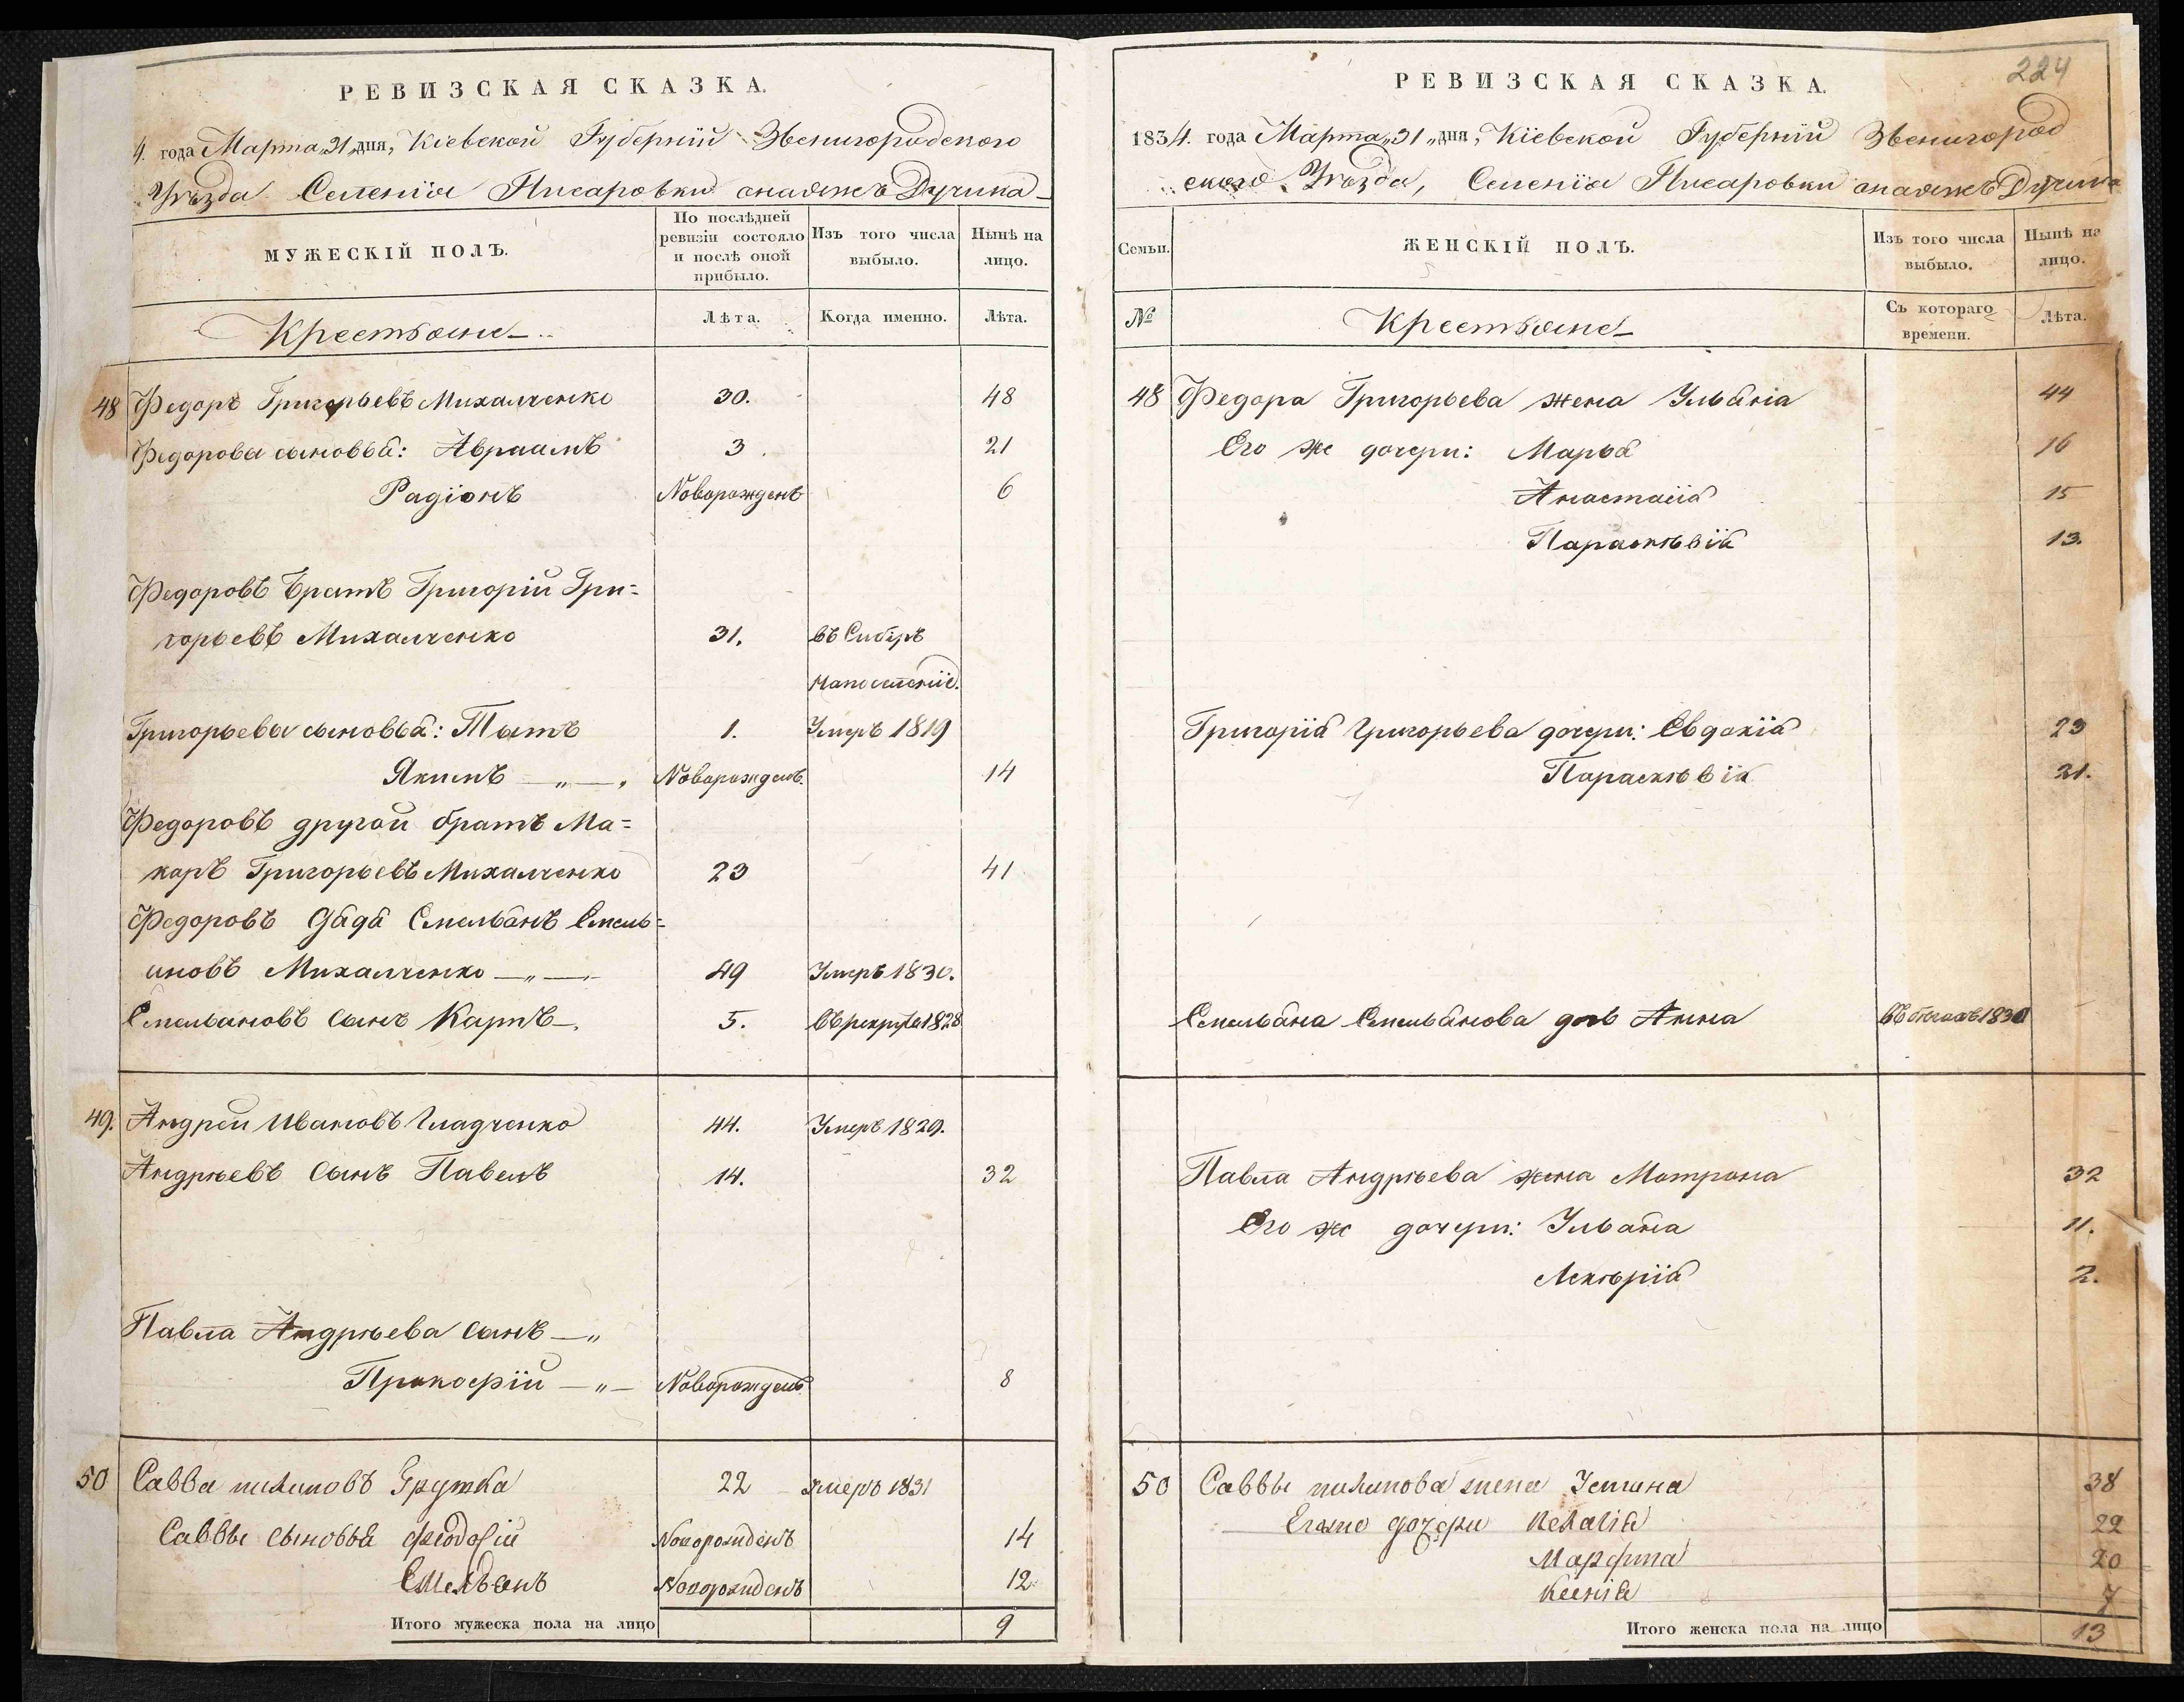 РЕВИЗСКАЯ СКАЗКА.
4. года Марта „31„ дня, Кіевской Губерніи Звенигородского
Уѣзда Селенія Писаровки онаяжъ Дучина
МУЖЕСКІЙ ПОЛЪ.
По послѣдней ревизіи состояло и послѣ оной прибыло.
Изъ того числа выбыло.
Нынѣ на лицо.
Крестьяне
Лѣта.
Когда именно.
Лѣта.
48 Федоръ Григорьевъ Михалченко 30. 48
Федорова сыновья: Авраамъ 3. 21
Радіонъ Новорожденъ 6
Федоровъ братъ Григорій Гри=
горьевъ Михалченко 31. въ Сибирѣ
напоселеніе.
Григорьева сыновья: Титъ 1. Умеръ 1819
Якимъ —„—„ Новорожденъ. 14
Федоровъ другой братъ Ма=
каръ Григорьевъ Михалченко 23 41
Федоровъ дядя Емельянъ Емель=
яновъ Михалченко —„— 49 Умеръ 1830.
Емельяновъ сынъ Карпъ —. 5. Въ рекруты 1828
49. Андрей Ивановъ Гладченко 44. Умеръ 1829.
Андрѣевъ сынъ Павелъ 14. 32
Павла Андрѣева сынъ —„
Прокофій —„— Новорожденъ. 8
50 Савва Пилиповъ Грушка 22 умеръ 1831
Саввы сыновья Феодосій Новорожденъ 14
Емельянъ Новорожденъ 12
Итого мужеска пола на лицо 9
224
РЕВИЗСКАЯ СКАЗКА.
1834. года Марта „31„ дня, Кіевской Губерніи Звенигород
ского Уѣзда, Селенія Писаровки онаяжъ Дучина
Семьи.
ЖЕНСКІЙ ПОЛЪ.
Изъ того числа выбыло.
Нынѣ на лицо.
№
Крестьяне
Съ котораго времени.
Лѣта.
48 Федора Григорьева жена Ульянія 44
Его же дочери: Марья 16
Анастасія 15
Параскѣвія 13.
Григорія Григорьева дочери: Евдокія 23
Параскѣвія 21.
Емельяна Емельянова дочь Анна Въ бѣгахъ 1830
Павла Андрѣева жена Матрона 32
Его же дочери: Ульяна 11.
Лекѣрія 2.
50 Саввы Пилипова жена Устина 38
Егоже дочери Пелагія 22
Марфина 20
Ксенія 7
Итого женска пола на лицо 13